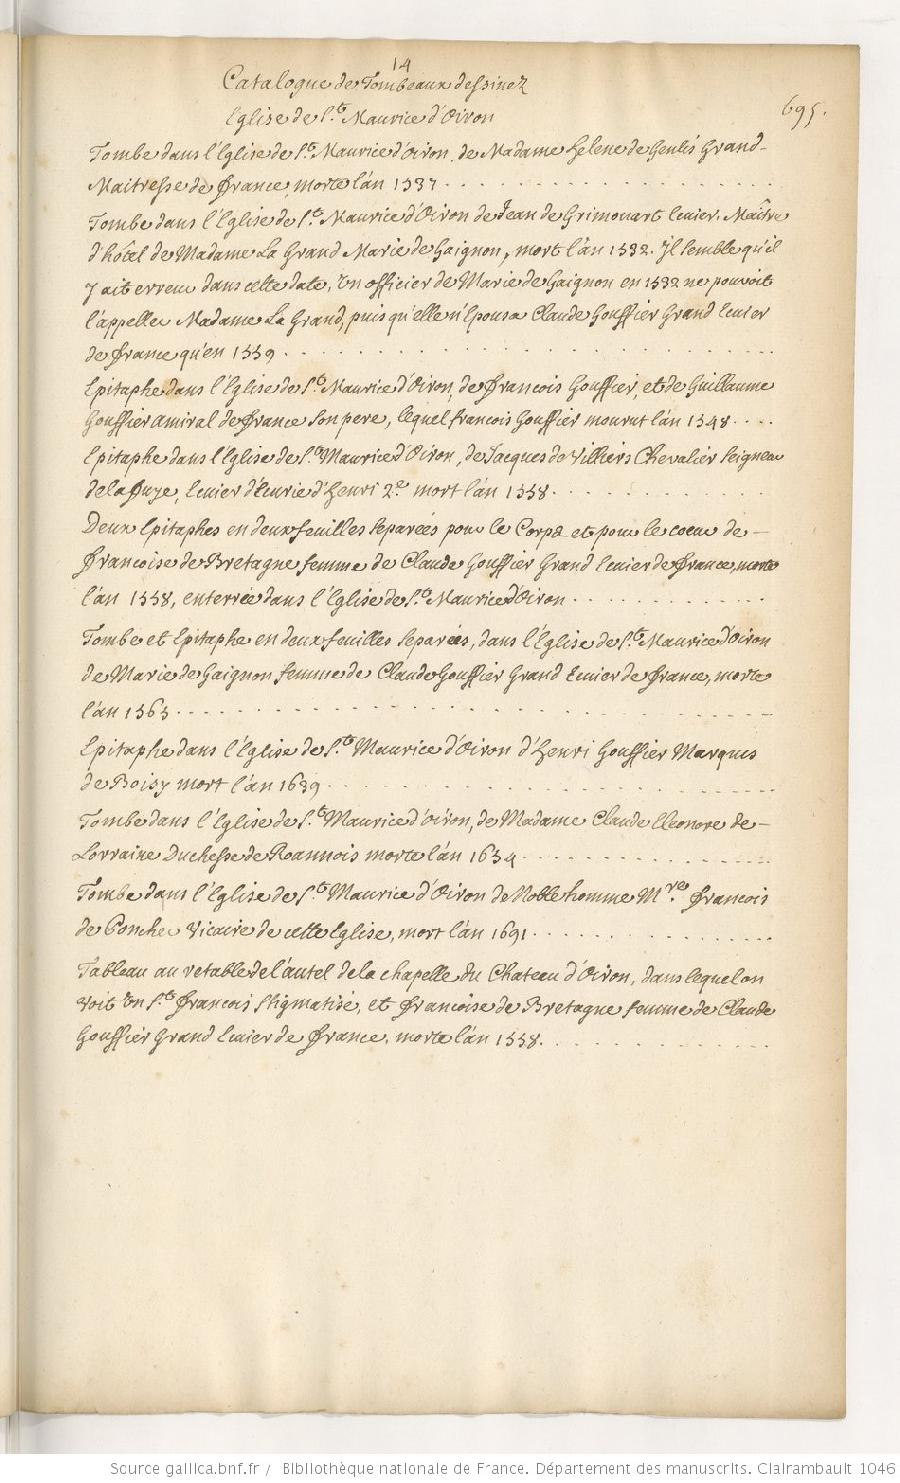 14
Catalogue de Tombeaux dessinez
695.
Eglise de St. Maurice d'Oiron
Tombe dans l'Eglise de St. Maurice d'Oiron, de Madame Helene de Genlis Grand-
Maitresse de france, morte l'an 1537
Tombe dans l'Eglise de St. Maurice d'Oiron de Jean de Grimouart Ecuier, Maître
d'hôtel de Madame La Grand Marie de Gaignon, mort l'an 1532. Jl semble qu'il
y ait erreur dans cette date, Un officier de Marie de Gaignon en 1532 ne pouvoit
l'appeller Madame La Grand, puis qu'elle n'Epousa Claude Gouffier Grand Ecuier
de france qu'en 1559
Epitaphe dans l'Eglise de St. Maurice d'Oiron, de francois Gouffier, et de Guillaume
Gouffier amiral de france son pere, lequel francois Gouffier mourut l'an 1548
Epitaphe dans l'Eglise de St. Maurice d'Oiron, de Jacques de Villiers Chevalier Seigneur
de la Ecuier d'Ecurie d'Henri 2.e mort l'an 1558
Deux Epitaphes en deux feuilles separées pour le Corps et pour le coeur de -
francoise de Bretagne femme de Claude Gouffier Grand Ecuier de france, morte
l'an 1558, enterrée dans l'Eglise de St. Maurice d'Oiron
Tombe et Epitaphe en deux feuilles separées, dans l'Eglise de St. Maurice d'Oiron
de Marie de Gaignon femme de Claude Gouffier Grand Ecuier de france, morte
l'an 1565
Epitaphe dans l'Eglise de St. Maurice d'Oiron d'Henri Gouffier Marquis
de Boisy mort l'an 1639
Tombe dans l'Eglise de St. Maurice d'oiron, de Madame Claude Eleonore de -
Lorraine Duchesse de Roannois morte l'an 1654
Tombe dans l'Eglise de St. Maurice d'Oiron de Noble homme M.re francois
de Poncher Vicaire de cette Eglise, mort l'an 1691
Tableau au retable de l'autel de la chapelle du Chateau d'Oiron, dans lequel on
Voit Un St. francois Stigmatisé, et francoise de Bretagne femme de Claude
Gouffier Grand Ecuier de france, morte l'an 1558.
Source gallica.bnf.fr / Bibliothèque nationale de France. Département des manuscrits. Clairambault 1046